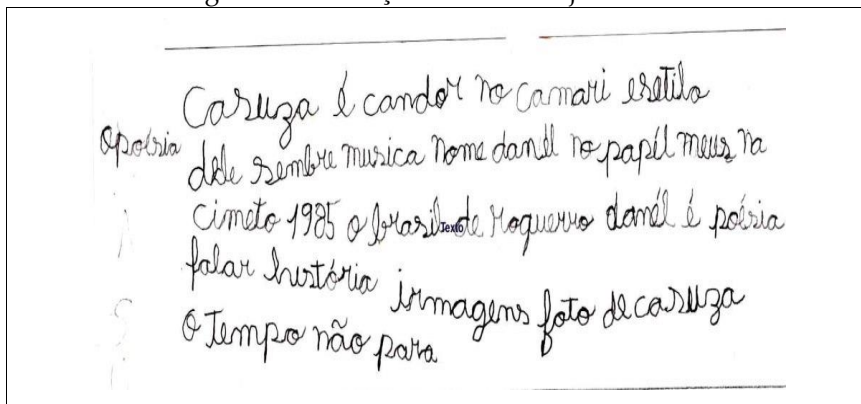 Casuza é candor no camari esetilo
apoésia dele sembre musica nome danél no papél meus na
cimeto 1985 o brasil de roquerro danél é poésia
Texto
falar hustória irmagens foto de casuza
o Tempo não para